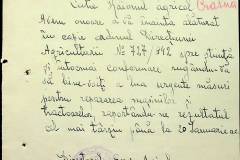 Către Raionul agricol Crasna
Avem onoare a vă înainta alăturat
în copie ordinul Direcțiunei
Agriculturii № 727/942 spre știință
și întocmai conformare rugându-vă
să bine-voiți a lua urgente măsuri
pentru repararea mașinilor și
tractoarelor, raportându-ne rezultatul
cel mai târziu până la 20 Ianuarie a.c.